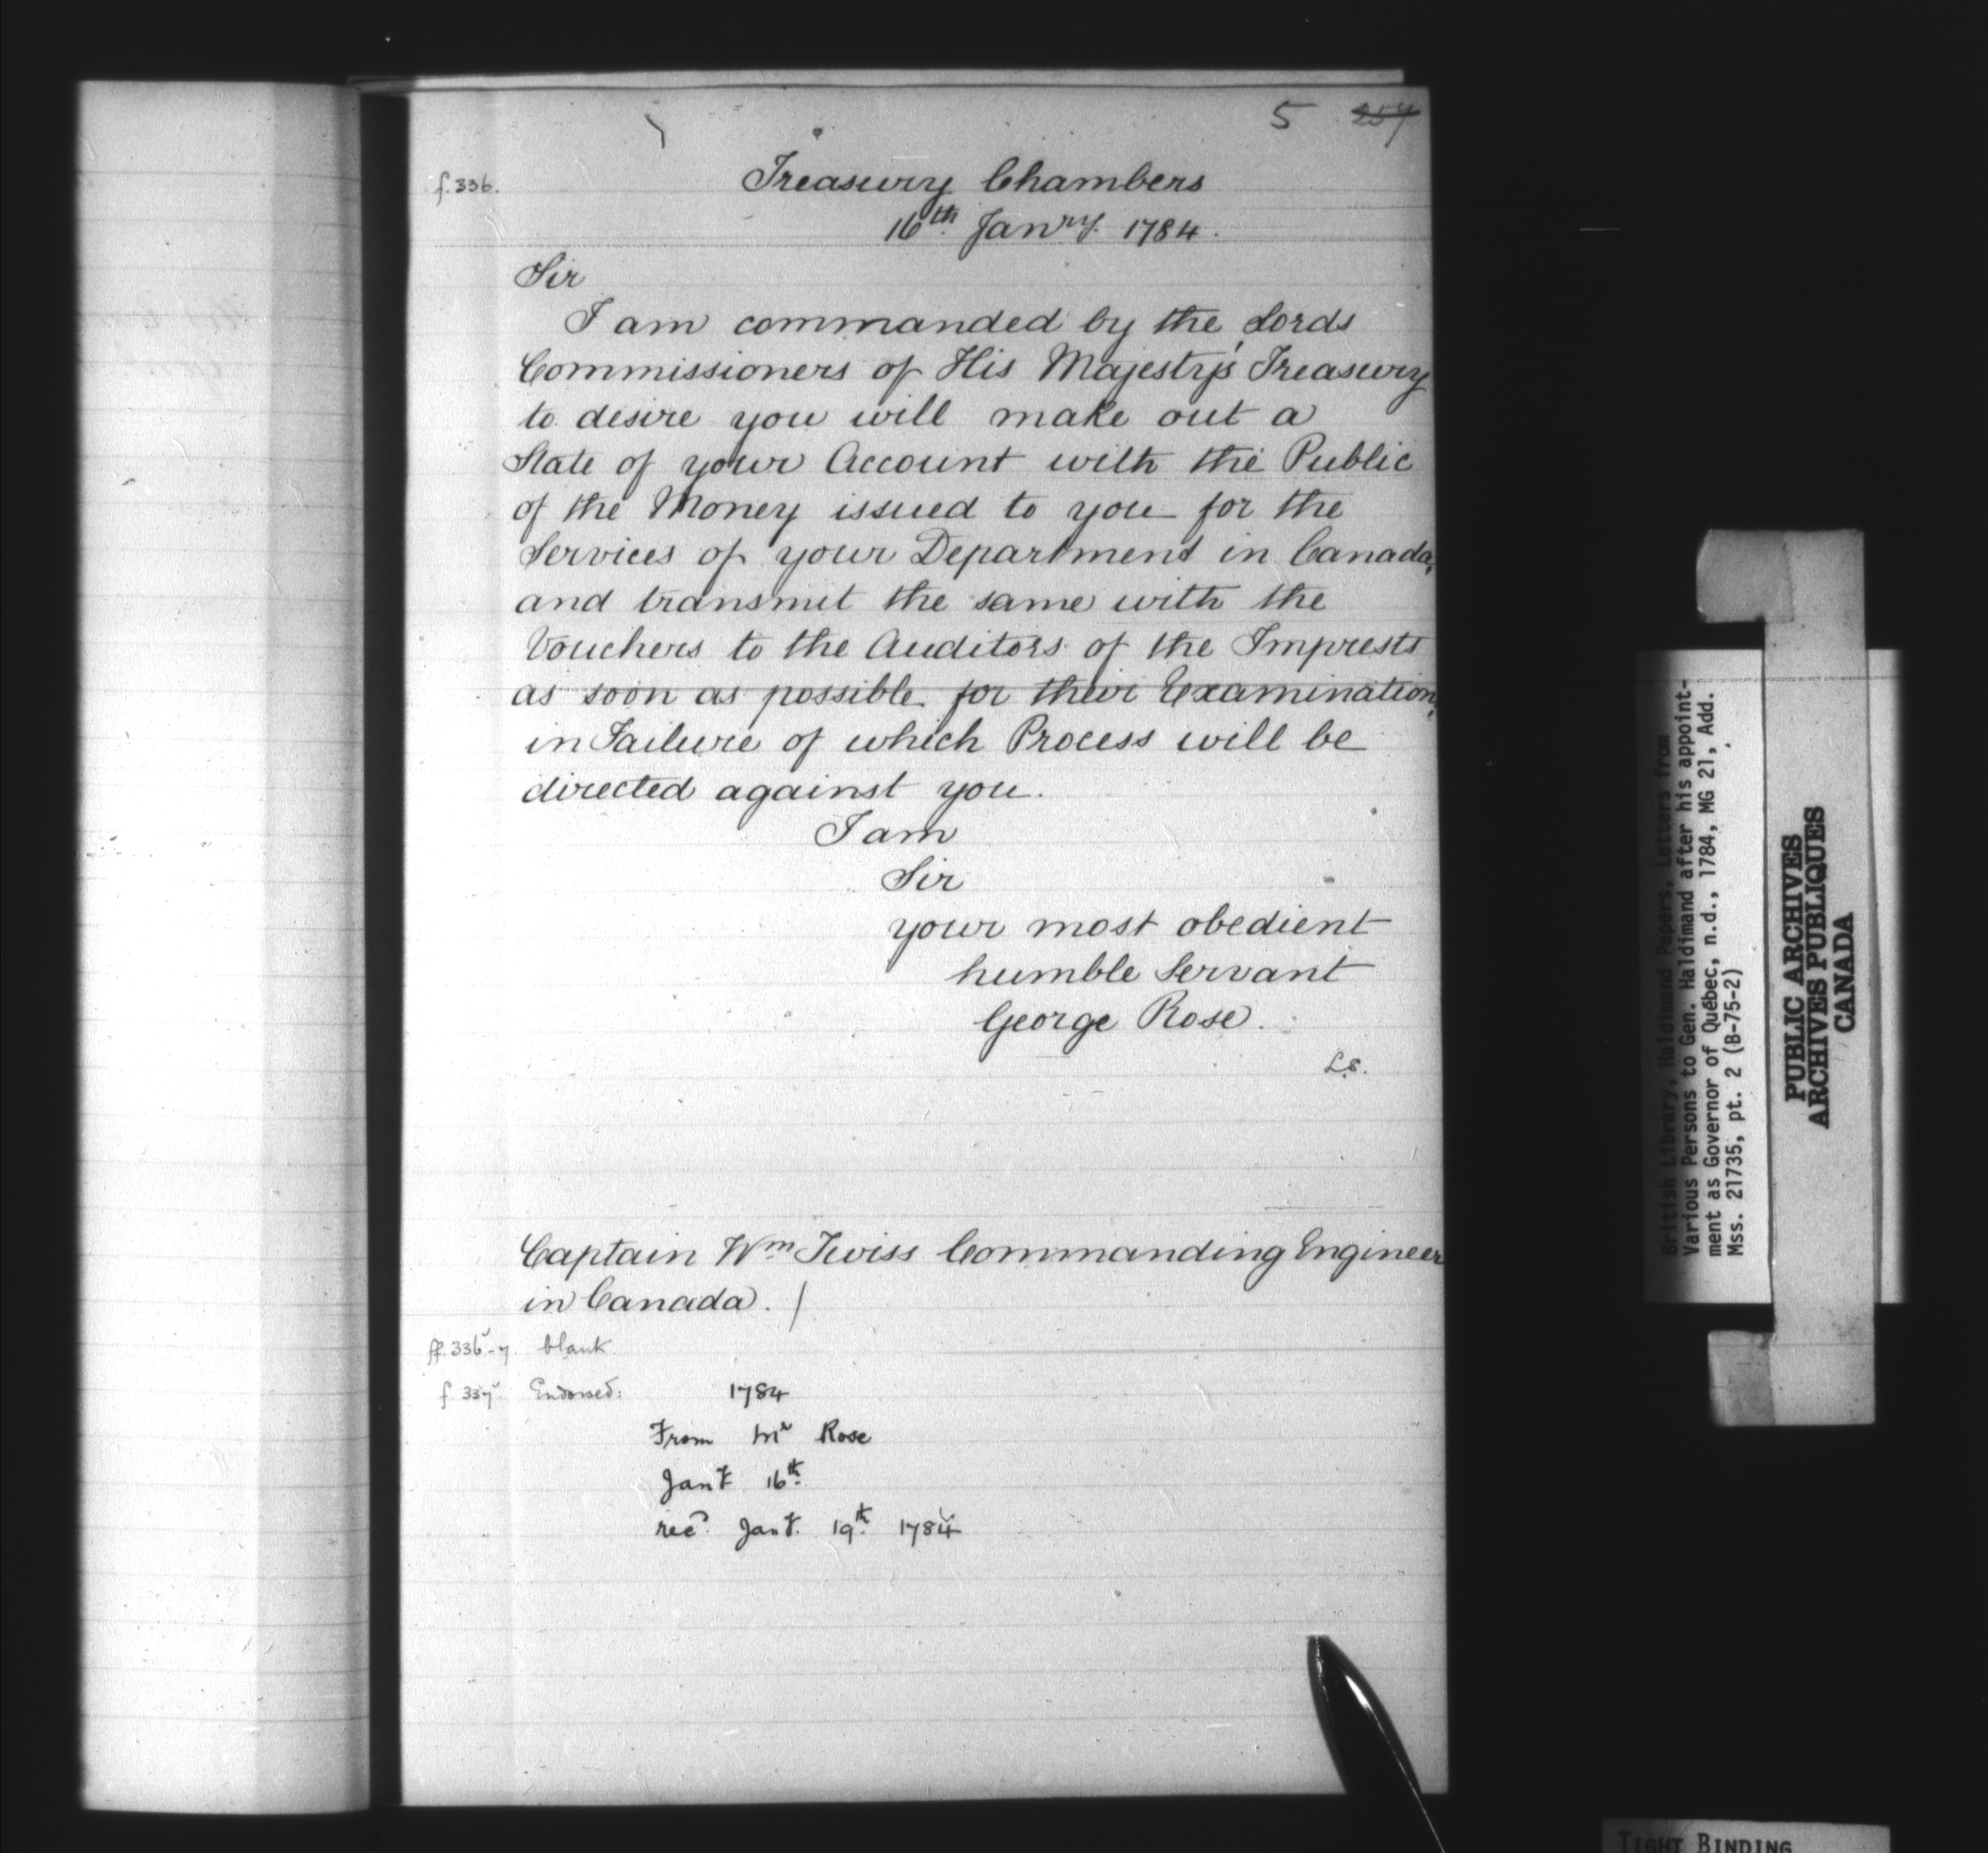 5 257
f. 336.
Treasury Chambers
16th Janry. 1784.
Sir
I am commanded by the Lords
Commissioners of His Majesty's Treasury
to desire you will make out a
State of your Account with the Public
of the Money issued to you for the
Services of your Department in Canada,
and transmit the same with the
Vouchers to the Auditors of the Imprests
as soon as possible for their Examination,
in Failure of which Process will be
directed against you.
I am
Sir
your most obedient
humble Servant
George Rose.
L.S.
Captain Wm Twiss Commanding Engineer
in Canada. /
ff. 336v-7. blank
f. 337v. Endorsed: 1784
From Mr Rose
Jany 16th.
recd. Jany. 19th. 1784
British Library, Haldimand Papers, Letters from
Various Persons to Gen. Haldimand after his appoint-
ment as Governor of Québec, n.d., 1784, MG 21, Add.
Mss. 21735, pt. 2 (B-75-2)
PUBLIC ARCHIVES
ARCHIVES PUBLIQUES
CANADA
TIGHT BINDING